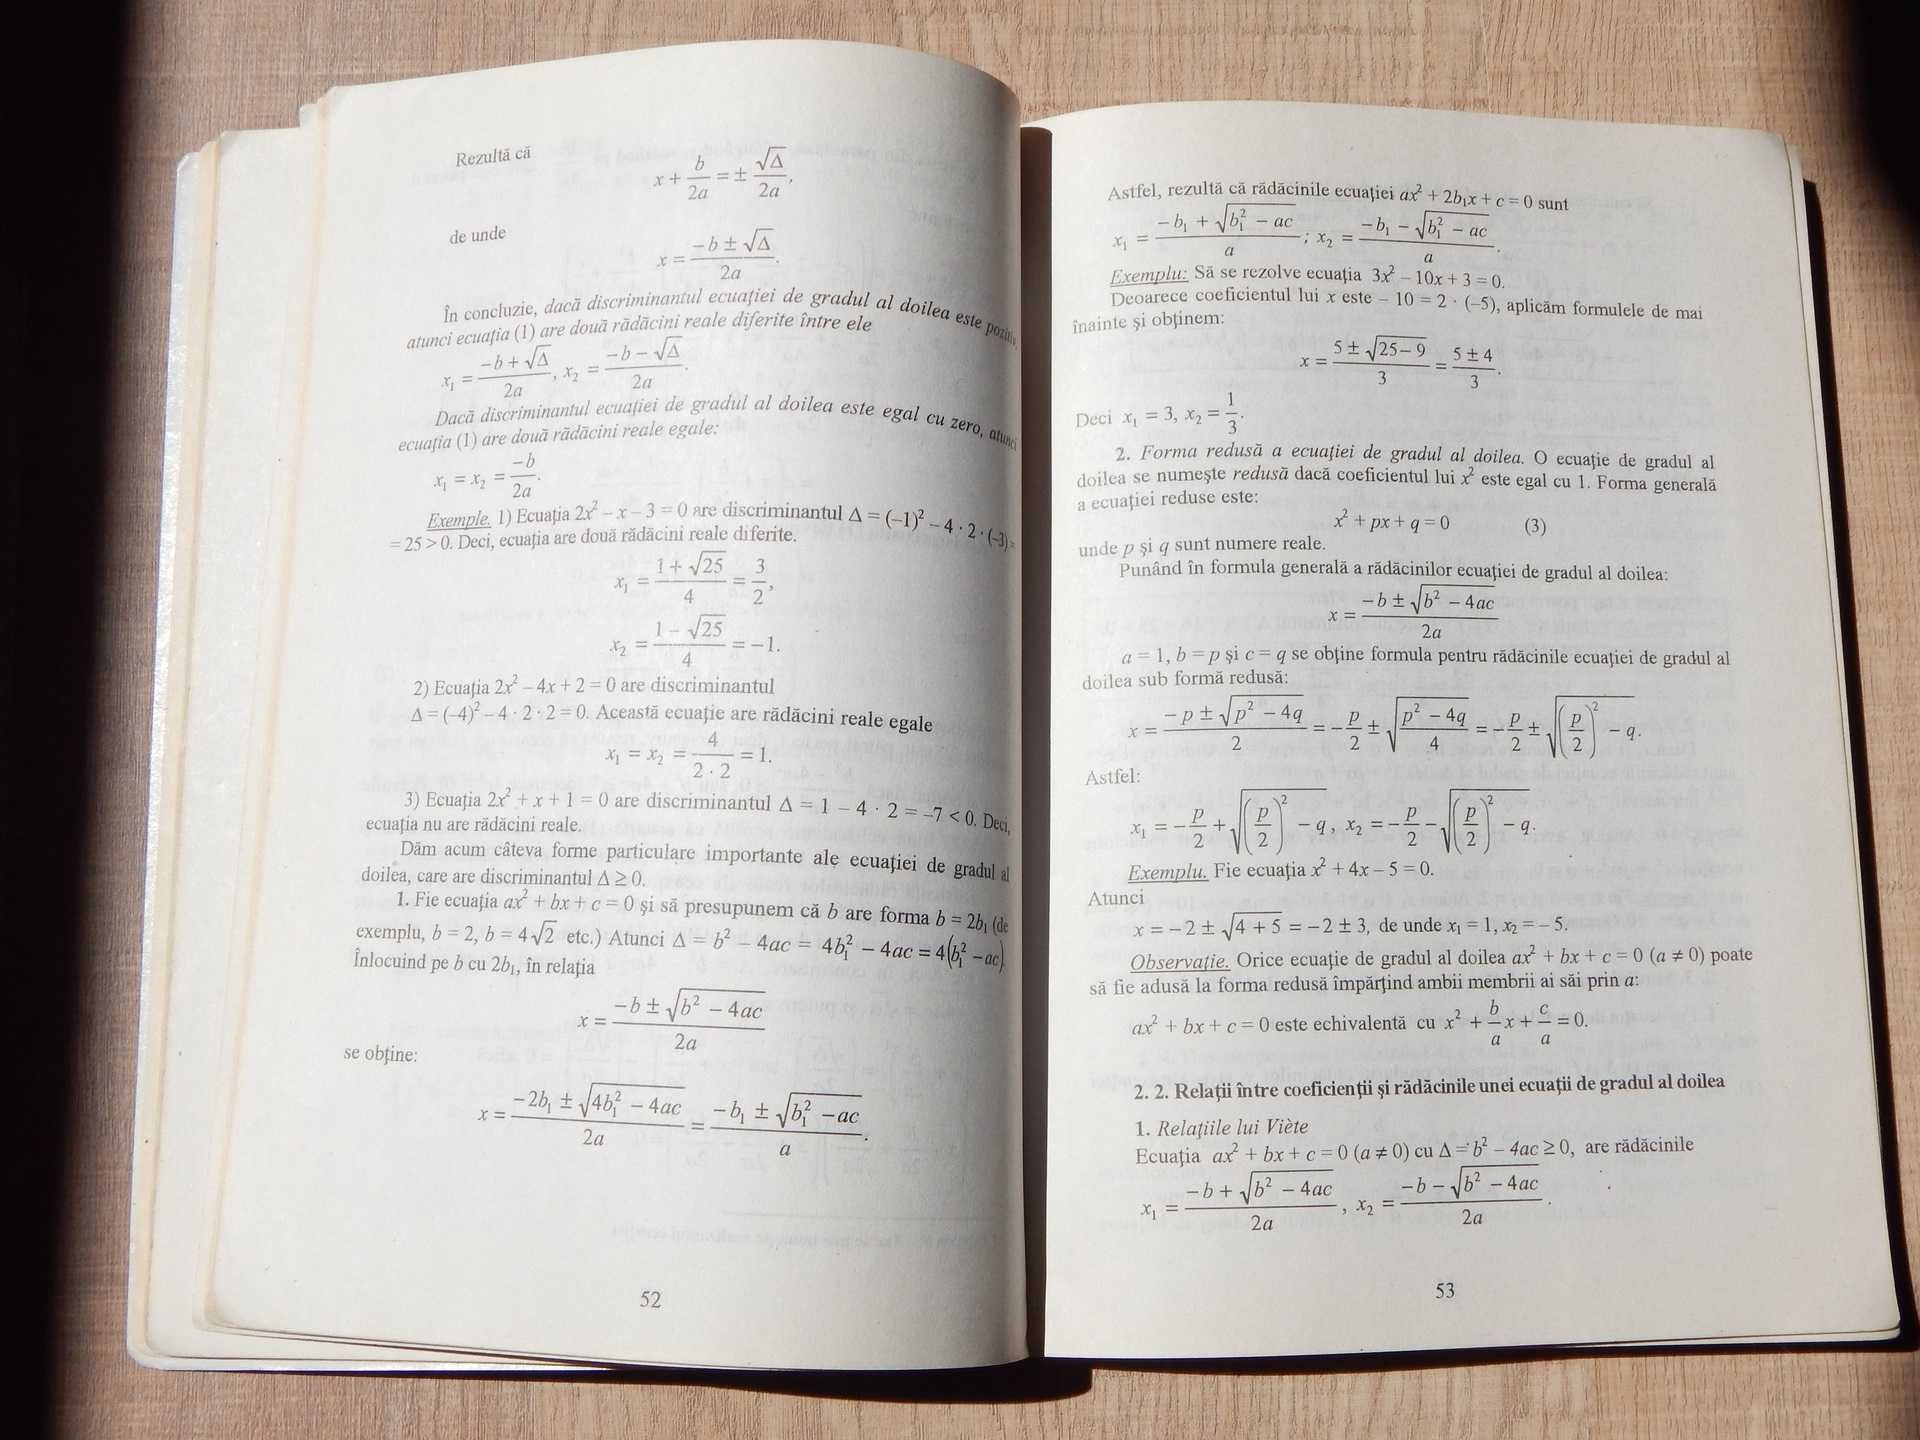 Rezultă că
x + b/2a = ± √Δ/2a,
de unde
x = (−b ± √Δ)/2a.
În concluzie, dacă discriminantul ecuaţiei de gradul al doilea este pozitiv,
atunci ecuaţia (1) are două rădăcini reale diferite între ele
x₁ = (−b + √Δ)/2a, x₂ = (−b − √Δ)/2a.
Dacă discriminantul ecuaţiei de gradul al doilea este egal cu zero, atunci
ecuaţia (1) are două rădăcini reale egale:
x₁ = x₂ = −b/2a.
Exemple. 1) Ecuaţia 2x² − x − 3 = 0 are discriminantul Δ = (−1)² − 4 · 2 · (−3) =
= 25 > 0. Deci, ecuaţia are două rădăcini reale diferite.
x₁ = (1 + √25)/4 = 3/2,
x₂ = (1 − √25)/4 = −1.
2) Ecuaţia 2x² − 4x + 2 = 0 are discriminantul
Δ = (−4)² − 4 · 2 · 2 = 0. Această ecuaţie are rădăcini reale egale
x₁ = x₂ = 4/(2 · 2) = 1.
3) Ecuaţia 2x² + x + 1 = 0 are discriminantul Δ = 1 − 4 · 2 = −7 < 0. Deci,
ecuaţia nu are rădăcini reale.
Dăm acum câteva forme particulare importante ale ecuaţiei de gradul al
doilea, care are discriminantul Δ ≥ 0.
1. Fie ecuaţia ax² + bx + c = 0 şi să presupunem că b are forma b = 2b₁ (de
exemplu, b = 2, b = 4√2 etc.) Atunci Δ = b² − 4ac = 4b₁² − 4ac = 4(b₁² − ac).
Înlocuind pe b cu 2b₁, în relaţia
x = (−b ± √(b² − 4ac))/2a
se obţine:
x = (−2b₁ ± √(4b₁² − 4ac))/2a = (−b₁ ± √(b₁² − ac))/a.
52
Astfel, rezultă că rădăcinile ecuaţiei ax² + 2b₁x + c = 0 sunt
x₁ = (−b₁ + √(b₁² − ac))/a ; x₂ = (−b₁ − √(b₁² − ac))/a.
Exemplu: Să se rezolve ecuaţia 3x² − 10x + 3 = 0.
Deoarece coeficientul lui x este − 10 = 2 · (−5), aplicăm formulele de mai
înainte şi obţinem:
x = (5 ± √(25 − 9))/3 = (5 ± 4)/3.
Deci x₁ = 3, x₂ = 1/3.
2. Forma redusă a ecuaţiei de gradul al doilea. O ecuaţie de gradul al
doilea se numeşte redusă dacă coeficientul lui x² este egal cu 1. Forma generală
a ecuaţiei reduse este:
x² + px + q = 0 (3)
unde p şi q sunt numere reale.
Punând în formula generală a rădăcinilor ecuaţiei de gradul al doilea:
x = (−b ± √(b² − 4ac))/2a
a = 1, b = p şi c = q se obţine formula pentru rădăcinile ecuaţiei de gradul al
doilea sub formă redusă:
x = (−p ± √(p² − 4q))/2 = −p/2 ± √((p² − 4q)/4) = −p/2 ± √((p/2)² − q).
Astfel:
x₁ = −p/2 + √((p/2)² − q), x₂ = −p/2 − √((p/2)² − q).
Exemplu. Fie ecuaţia x² + 4x − 5 = 0.
Atunci
x = −2 ± √(4 + 5) = −2 ± 3, de unde x₁ = 1, x₂ = − 5.
Observaţie. Orice ecuaţie de gradul al doilea ax² + bx + c = 0 (a ≠ 0) poate
să fie adusă la forma redusă împărţind ambii membrii ai săi prin a:
ax² + bx + c = 0 este echivalentă cu x² + b/a x + c/a = 0.
2. 2. Relaţii între coeficienţii şi rădăcinile unei ecuaţii de gradul al doilea
1. Relaţiile lui Viète
Ecuaţia ax² + bx + c = 0 (a ≠ 0) cu Δ = b² − 4ac ≥ 0, are rădăcinile
x₁ = (−b + √(b² − 4ac))/2a, x₂ = (−b − √(b² − 4ac))/2a.
53